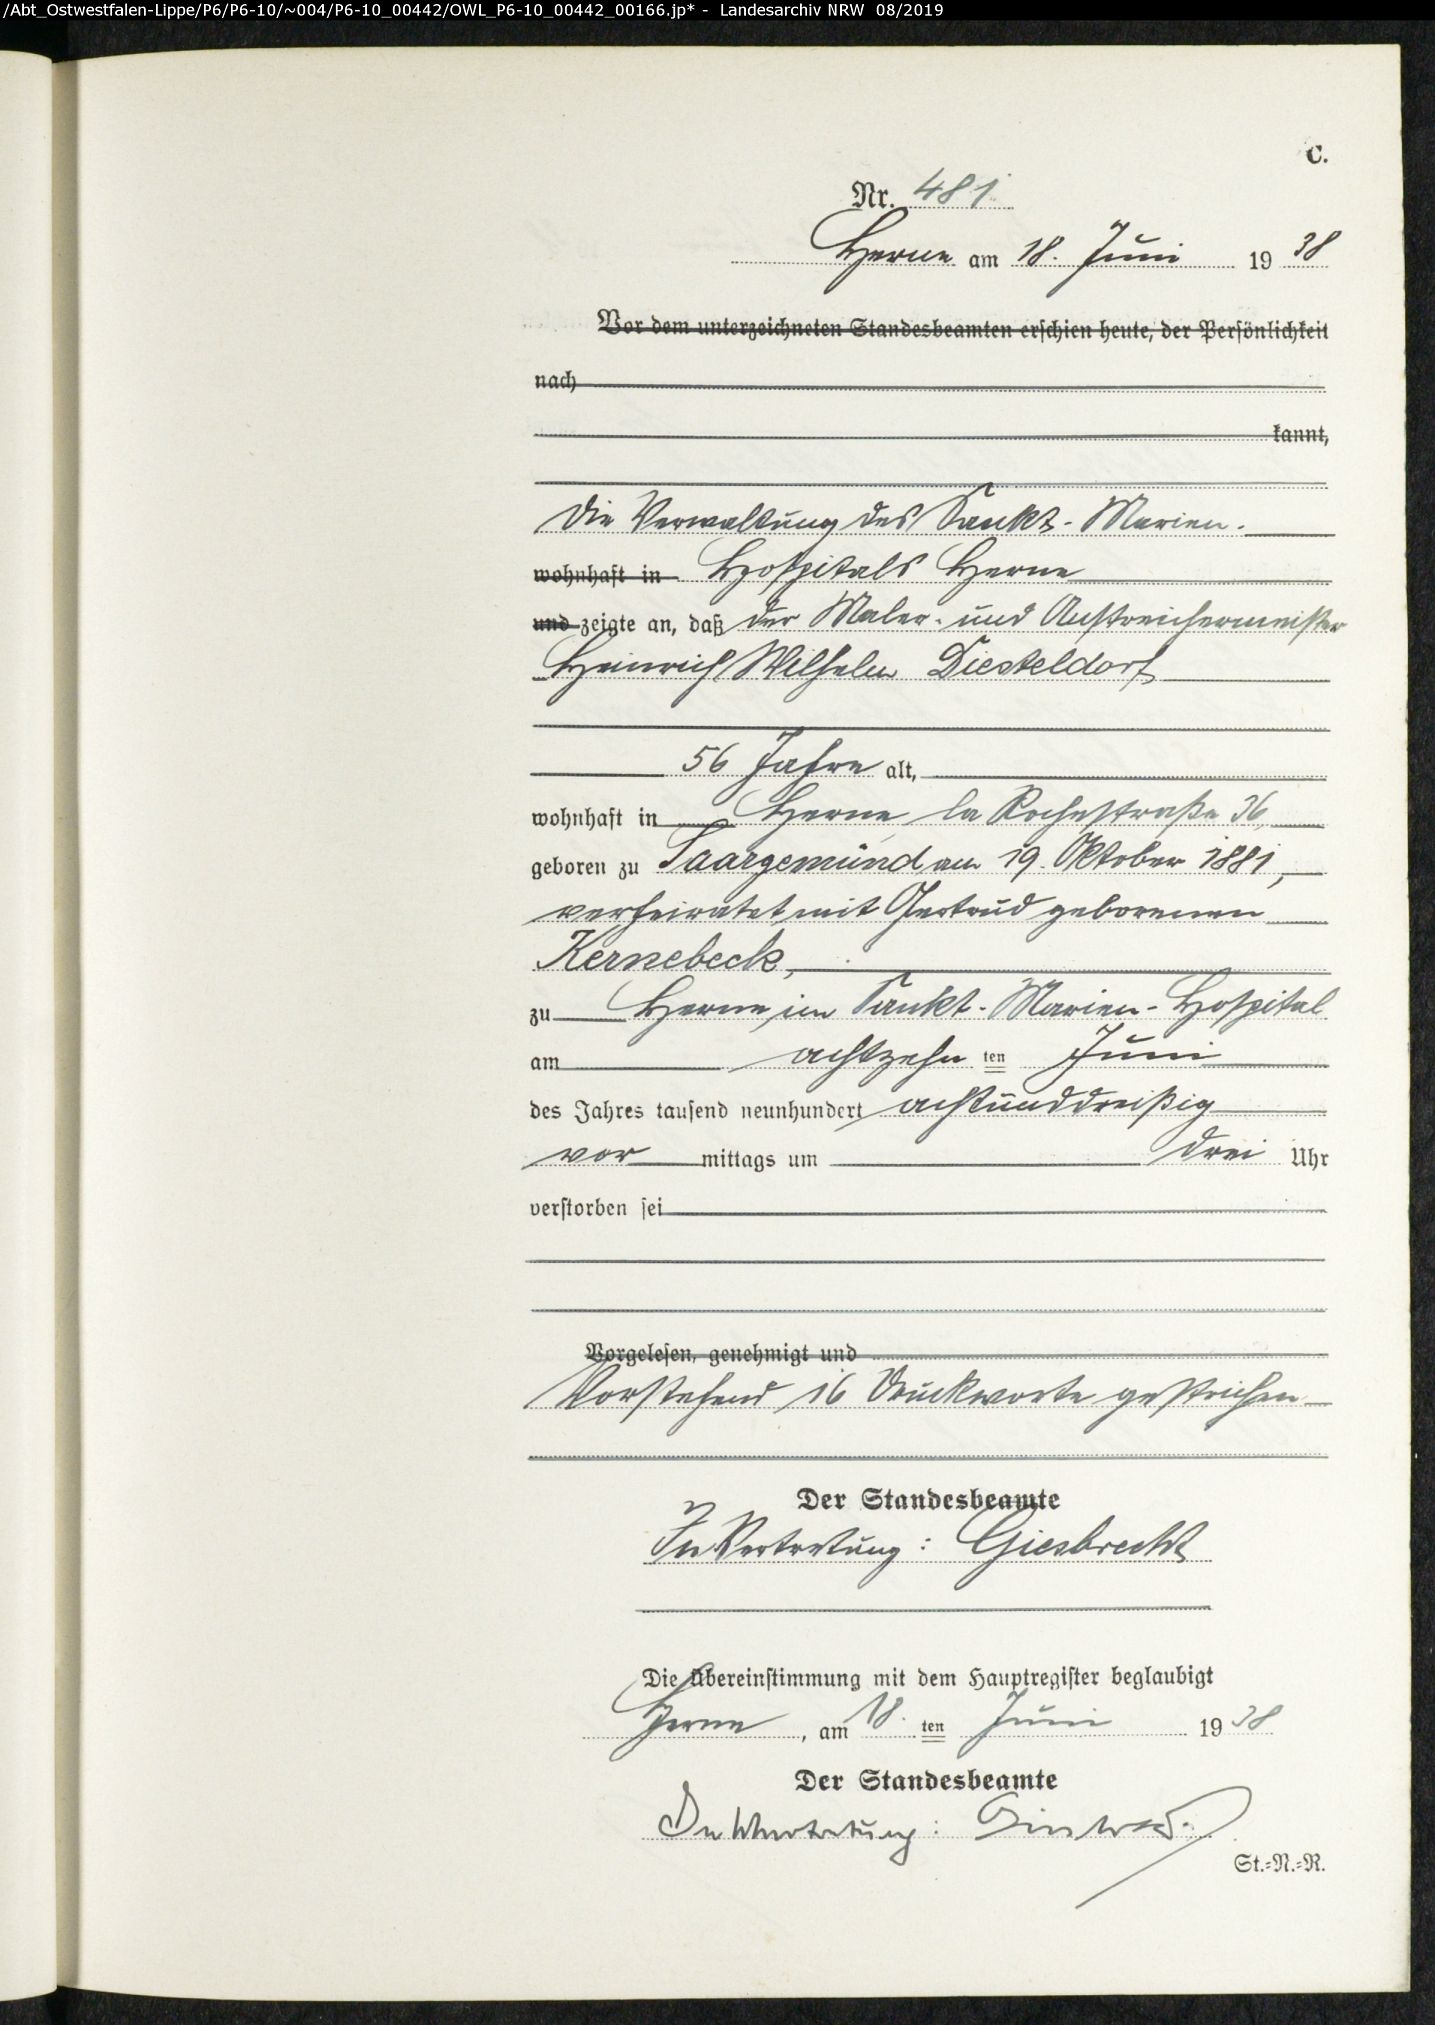 /Abt_Ostwestfalen-Lippe/P6/P6-10/~004/P6-10_00442/OWL_P6-10_00442_00166.jp* - Landesarchiv NRW 08/2019
C.
Nr. 481
Herne am 18. Juni 19 38
Vor dem unterzeichneten Standesbeamten erschien heute, der Persönlichkeit
nach
kannt,
Die Verwaltung des Sankt-Marien-
wohnhaft in Hospitals Herne
und zeigte an, daß der Maler- und Anstreichermeister
Heinrich Wilhelm Diesteldorf
56 Jahre alt,
wohnhaft in Herne, la Rochestraße 36,
geboren zu Saargemünd am 19. Oktober 1881,
verheiratet mit Gertrud geborenen
Kernebeck,
zu Herne, im Sankt-Marien-Hospital
am achtzehn ten Juni
des Jahres tausend neunhundert achtunddreißig
vor mittags um drei Uhr
verstorben sei
Vorgelesen, genehmigt und
Vorstehend 16 Druckworte gestrichen
Der Standesbeamte
In Vertretung: Giesbrecht
Die Übereinstimmung mit dem Hauptregister beglaubigt
Herne, am 18. ten Juni 19 38
Der Standesbeamte
In Vertretung:
St.=N.=R.